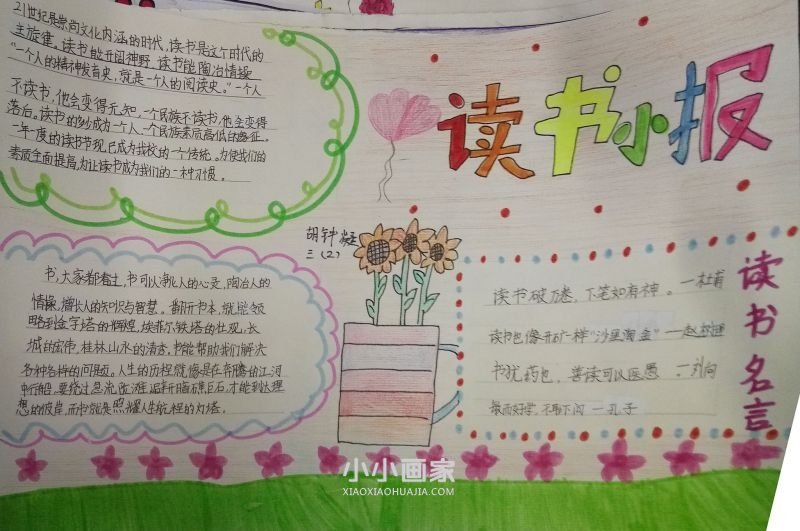 21世纪是崇尚文化内涵的时代,读书是这个时代的
主旋律。读书能开阔神野,读书能陶冶情操
"一个人的精神发育史,就是一个人的阅读史。"一个人
不读书,他会变得无知,一个民族不读书,他会变得
落后。读书的妙成为一个人、一个民族素质高低的特征。
一年一度的读书节现已成为我校的一个传统。为使我们的
素质全面提高,为让读书成为我们的一种习惯。
读书小报
胡钟凝
三(2)
书,大家都看过,书可以净化人的心灵,陶冶人的
情操,增长人的知识与智慧。翻开书本,就能领
略到金字塔的辉煌,埃菲尔铁塔的壮观,长
城的宏伟,桂林山水的清秀。书能帮助我们解决
各种各样的问题。人生的历程就像是在奔腾的江河
中行船,要绕过急流险滩,避开暗礁巨石,才能到达理
想的彼岸,而书就是照耀人生航程的灯塔。
读书名言
读书破万卷,下笔如有神。—杜甫
读书也像开矿一样"沙里淘金"—赵树理
书犹药也,善读可以医愚。—刘向
敏而好学,不耻下问 —孔子
小小画家
XIAOXIAOHUAJIA.COM